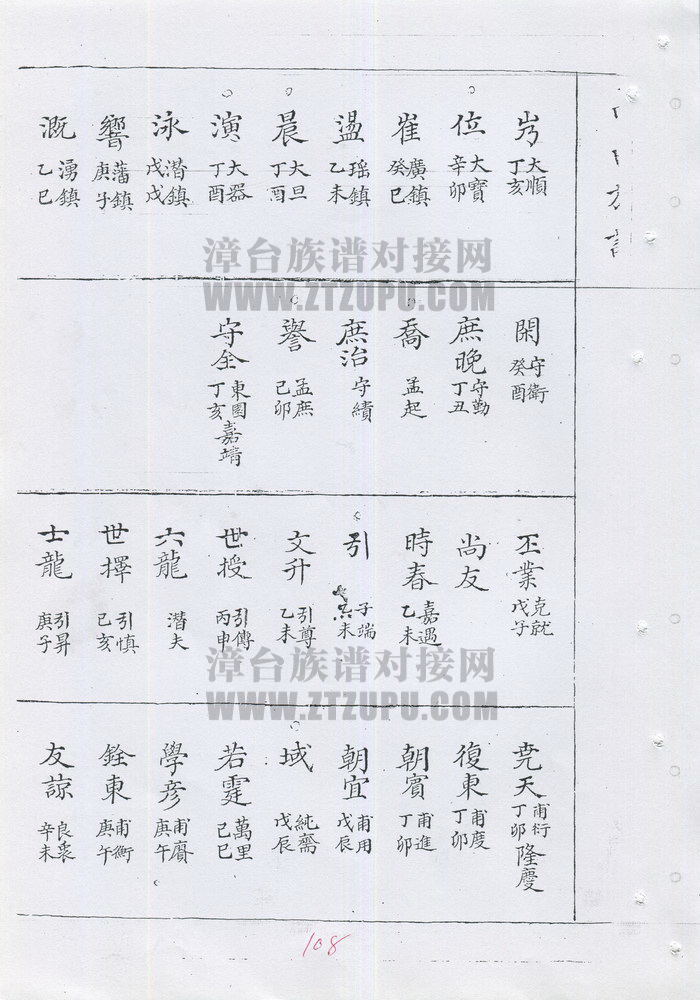 屴 大順 丁亥
位 大寶 辛卯
崔 廣鎮 癸巳
盪 瑶鎮 乙未
晨 大旦 丁酉
演 大器 丁酉
泳 潛鎮 戊戌
響 藩鎮 庚子
溉 湧鎮 乙巳
閑 守衛 癸酉
庶晚 守勤 丁丑
喬 孟起
庶治 守績
譽 孟庶 己卯
守全 東園 丁亥 嘉靖
丕業 克就 戊子
尚友
時春 嘉遇 乙未
引 子端 未
文升 引尊 乙未
世授 引傳 丙申
六龍 潛夫
世擇 引慎 己亥
士龍 引昇 庚子
堯天 甫衍 丁卯 隆慶
復東 甫度 丁卯
朝賓 甫進 丁卯
朝宜 甫用 戊辰
域 純齋 戊辰
若霆 萬里 己巳
學彥 甫賡 庚午
銓東 甫衡 庚午
友諒 良裘 辛未
漳台族谱对接网
WWW.ZTZUPU.COM
漳台族谱对接网
WWW.ZTZUPU.COM
108